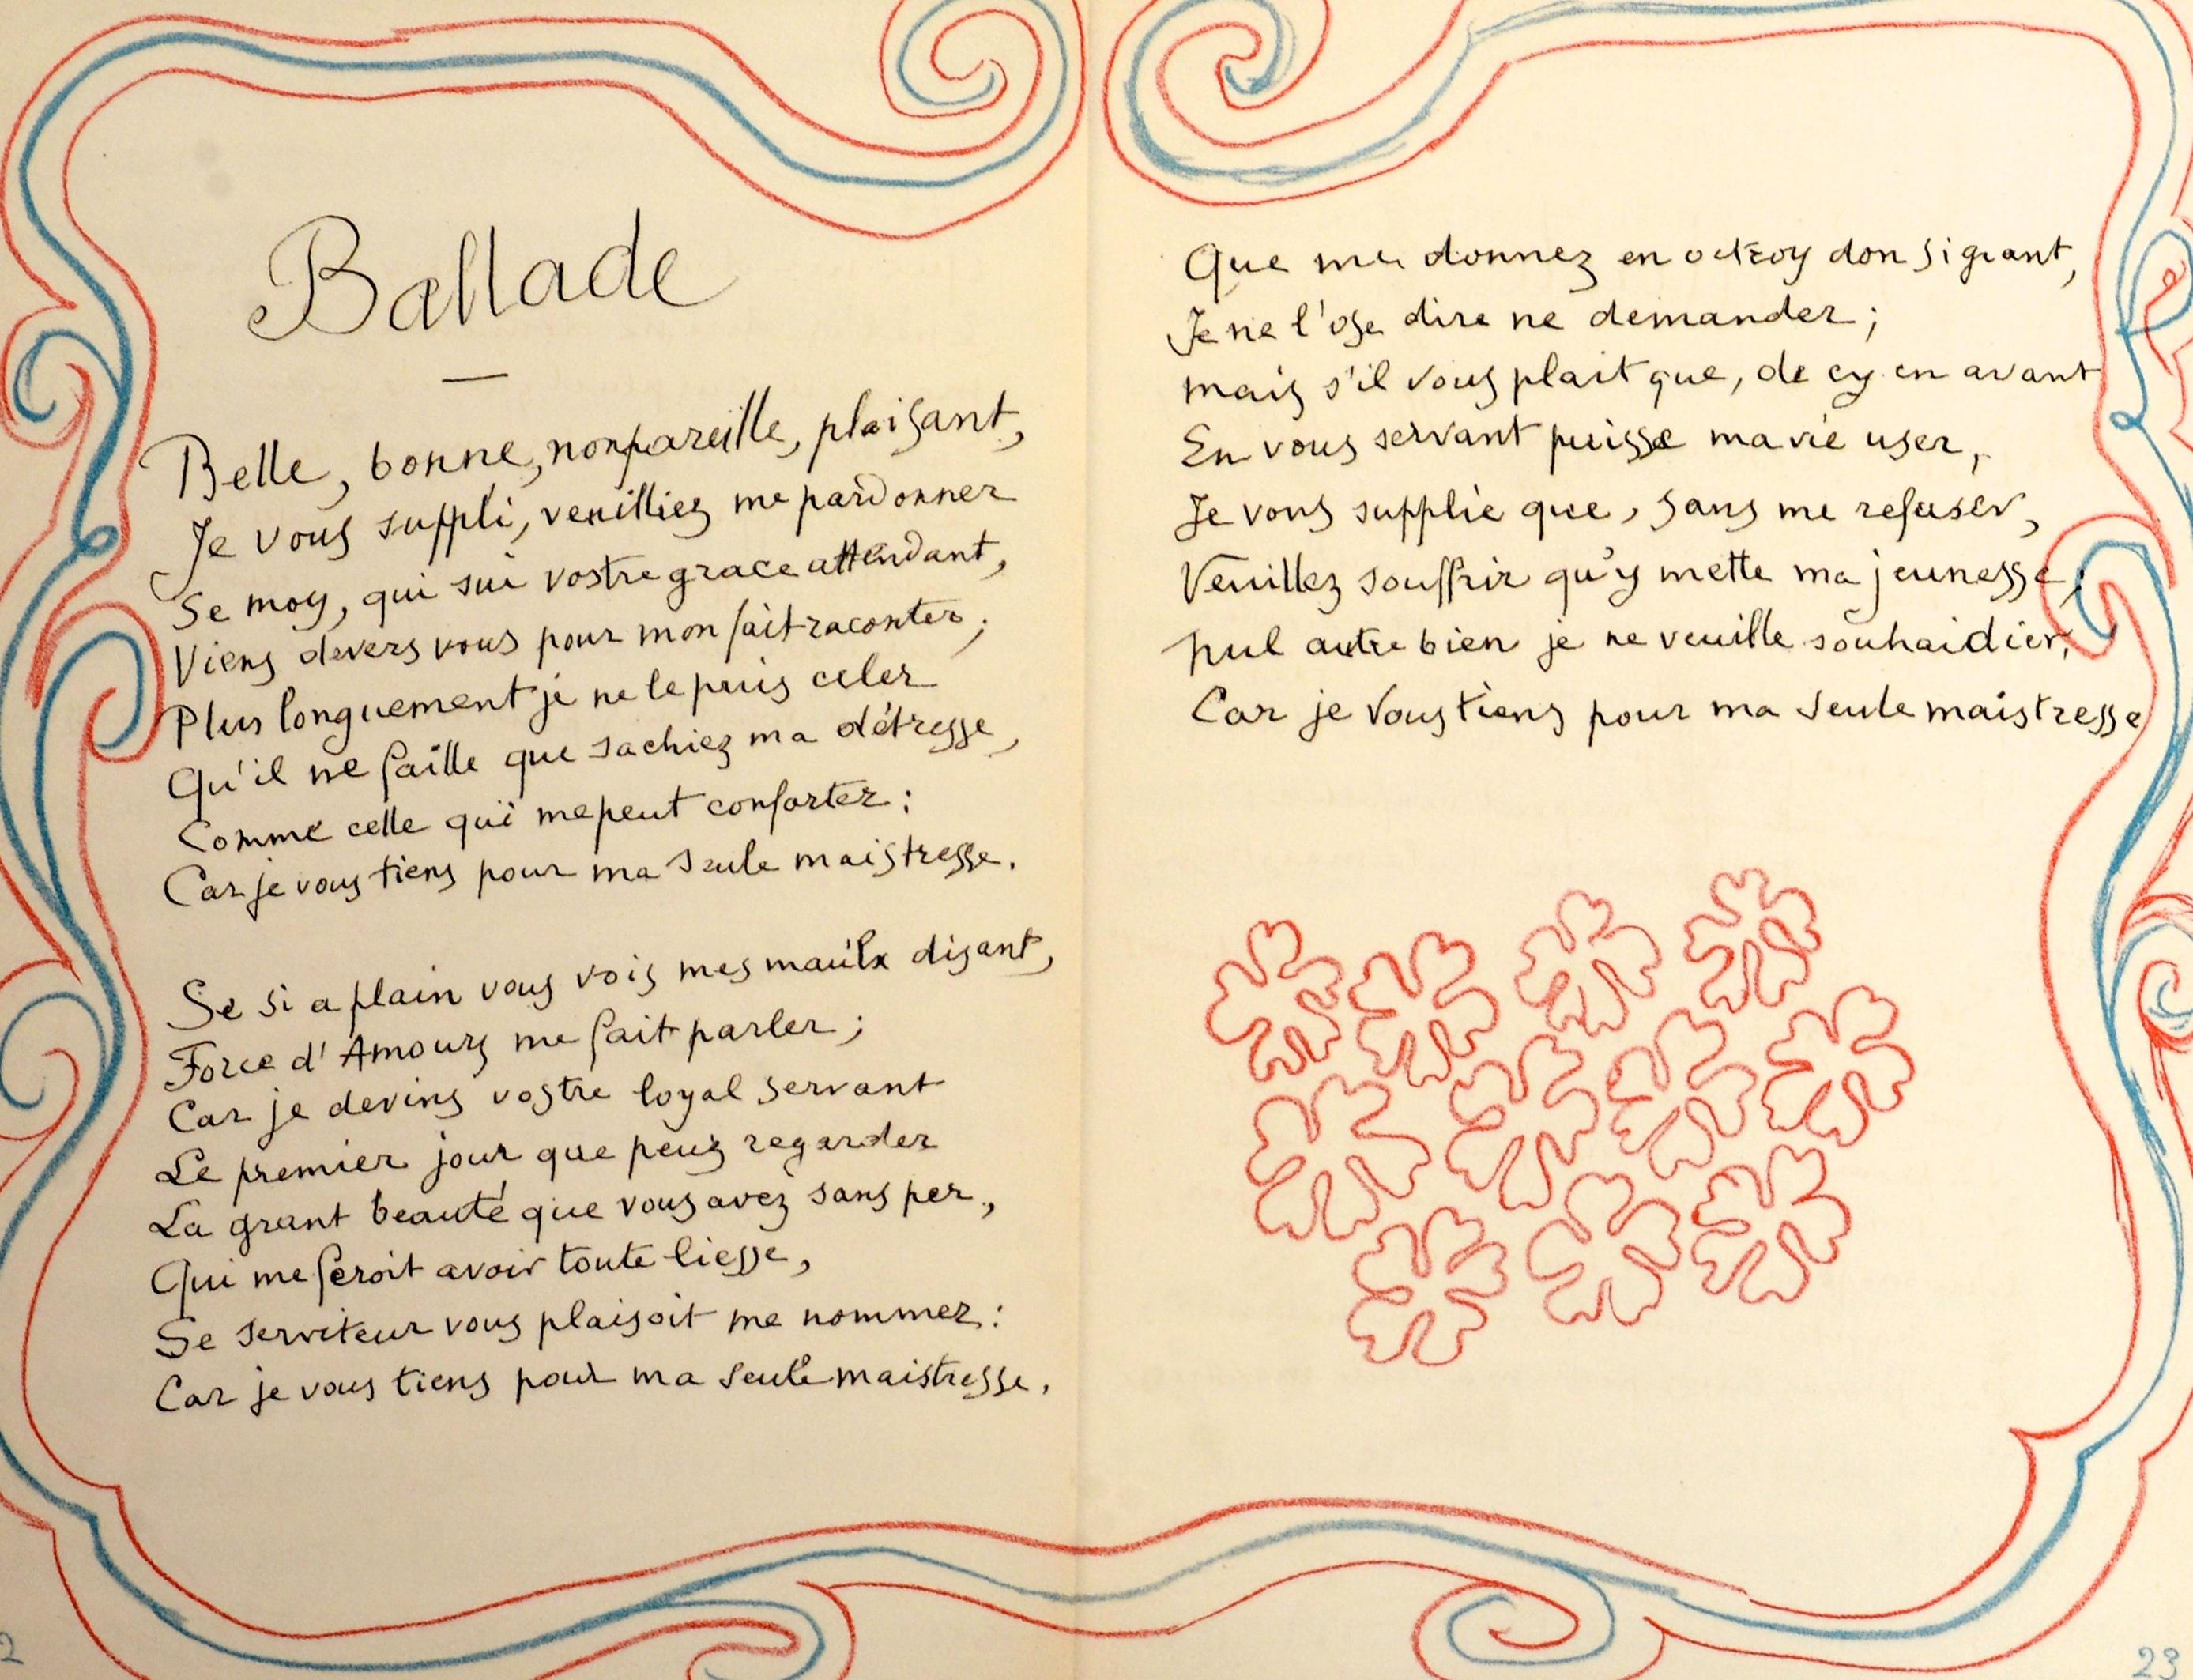 Ballade
Belle, bonne, nonpareille, plaisant,
Je vous suppli, veuilliez me pardonner
Se moy, qui sui vostre grace attendant,
Viens devers vous pour mon fait raconter;
Plus longuement je ne le puis celer
Qu'il ne faille que sachiez ma détresse,
Comme celle qui me peut conforter:
Car je vous tiens pour ma seule maistresse.
Se si a plain vous vois mes maulx disant,
Force d'Amours me fait parler;
Car je devins vostre loyal servant
Le premier jour que peuz regarder
La grant beauté que vous avez sans per,
Qui me feroit avoir toute liesse,
Se serviteur vous plaisoit me nommer:
Car je vous tiens pour ma seule maistresse.
Que me donnez en octroy don si grant,
Je ne l'ose dire ne demander;
mais s'il vous plait que, de cy en avant
En vous servant puisse ma vie user,
Je vous supplie que, sans me refuser,
Veuillez souffrir qu'y mette ma jeunesse;
nul autre bien je ne veuille souhaidier,
Car je vous tiens pour ma seule maistresse
2
23